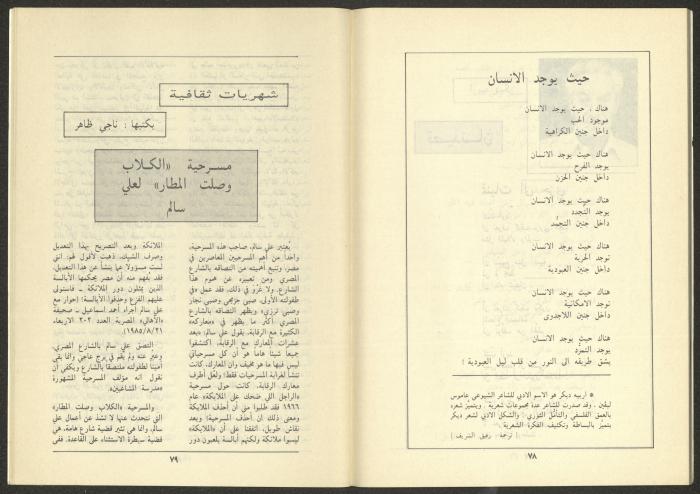 حيث يوجد الانسان
هناك ، حيث يوجد الانسان
موجود الحب
داخل جنين الكراهية
هناك حيث يوجد الانسان
يوجد الفرح
داخل جنين الحزن
هناك حيث يوجد الانسان
يوجد التجدد
داخل جنين التجمد
هناك حيث يوجد الانسان
توجد الحرية
داخل جنين العبودية
هناك حيث يوجد الانسان
توجد الامكانية
داخل جنين اللاجدوى
هناك حيث يوجد الانسان
يوجد التمرد
يشق طريقه الى النور من قلب ليل العبودية !
* اربيه ديكر هو الاسم الادبي للشاعر الشيوعي عاموس
ليڤين . وقد صدرت للشاعر عدة مجموعات شعرية . ويتميز شعره
بالعمق الفلسفي والتأمّل الثوري ! والشكل الادبي لشعر ديكر
يتميز بالبساطة وتكثيف الفكرة الشعرية .
( ترجمة . رفيق الشريف )
٧٨
شهريات ثقافية
يكتبها : ناجي ظاهر
مسرحية «الكلاب
وصلت المطار» لعلي
سالم
يُعتبر علي سالم، صاحب هذه المسرحية،
واحداً من أهم المسرحيين المعاصرين في
مصر، وتنبع أهميته من التصاقه بالشارع
المصري ومن تعبيره عن هموم هذا
الشارع. ولا غرو في ذلك، فقد عمل «في
طفولته الأولى، صبي جزمجي وصبي نجار
وصبي ترزي» ويظهر التصاقه بالشارع
المصري اكثر ما يظهر في «معاركه»
الكثيرة مع الرقابة. يقول علي سالم: «بعد
عشرات المعارك مع الرقابة، اكتشفوا
جميعاً شيئا هاما هو أن كل مسرحياتي
ليس فيها ما هو مخيف وان المعارك، كانت
تنشأ لغرابة المسرحيات فقط! ولعل أطرف
معارك الرقابة، كانت حول مسرحية
«الراجل اللي ضحك على الملايكة» عام
١٩٦٦ فقد طلبوا مني أن أحذف الملايكة
ومعنى ذلك أن أحذف المسرحية! وبعد
نقاش طويل، اتفقنا على أن «الملايكة»
ليسوا ملائكة ولكنهم أبالسة يلعبون دور
الملائكة. وبعد التصريح بهذا التعديل
وصرف الشيك، ذهبت لأقول لهم: انني
لست مسؤولا عما ينشأ عن هذا التعديل.
فقد يفهم منه أن مصر يحكمها الأبالسة
الذين يمثلون دور الملائكة ــ فاستولى
عليهم الفزع وحذفوا الأبالسة! (حوار مع
علي سالم أجراه أحمد اسماعيل ــ صحيفة
«الأهالي» المصرية العدد ٢٠٢ الاربعاء
٢١/٨/١٩٨٥).
التصق علي سالم بالشارع المصري،
وعبر عنه ولم يقم في برج عاجي وانما بقي
أمينا لطفولته ملتصقا بالشارع ويكفي أن
نقول أنه مؤلف المسرحية المشهورة
«مدرسة المشاغبين».
والمسرحية «الكلاب وصلت المطار»
التي نتحدث عنها لا تشذ عن أعمال علي
سالم، وانما هي تثير قضية شارع هامة، هي
قضية سيطرة الاستثناء على القاعدة. ففي
٧٩